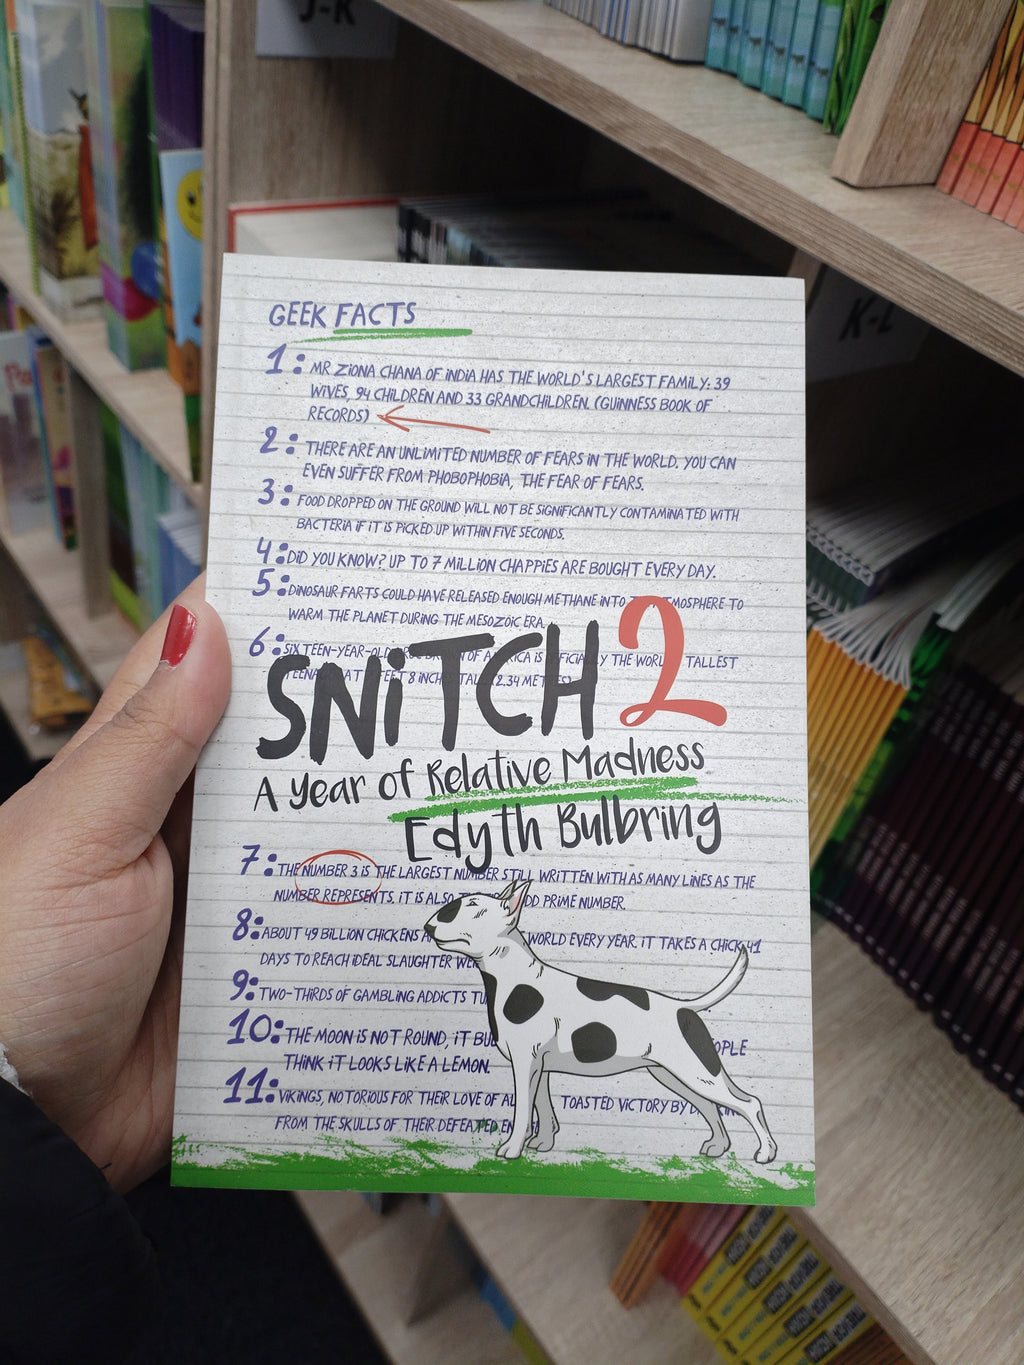 J-K
K-L
GEEK FACTS
1: MR ZIONA CHANA OF INDIA HAS THE WORLD'S LARGEST FAMILY: 39
WIVES, 94 CHILDREN AND 33 GRANDCHILDREN. (GUINNESS BOOK OF
RECORDS)
2: THERE ARE AN UNLIMITED NUMBER OF FEARS IN THE WORLD. YOU CAN
EVEN SUFFER FROM PHOBOPHOBIA, THE FEAR OF FEARS.
3: FOOD DROPPED ON THE GROUND WILL NOT BE SIGNIFICANTLY CONTAMINATED WITH
BACTERIA IF IT IS PICKED UP WITHIN FIVE SECONDS.
4: DID YOU KNOW? UP TO 7 MILLION CHAPPIES ARE BOUGHT EVERY DAY.
5: DINOSAUR FARTS COULD HAVE RELEASED ENOUGH METHANE INTO TMOSPHERE TO
WARM THE PLANET DURING THE MESOZOIC ERA.
6: SIXTEEN-YEAR-OLD OF IS THE TALLEST
FEET 8 (2.34
SNITCH 2
A Year of Relative Madness
Edyth Bulbring
7: THE NUMBER 3 IS THE LARGEST NUMBER STILL WRITTEN WITH AS MANY LINES AS THE
NUMBER REPRESENTS. IT IS ALSO DD PRIME NUMBER.
8: ABOUT 49 BILLION CHICKENS WORLD EVERY YEAR. IT TAKES A CHICK 41
DAYS TO REACH IDEAL SLAUGHTER
9: TWO-THIRDS OF GAMBLING ADDICTS
10: THE MOON IS NOT ROUND, IT OPLE
THINK IT LOOKS LIKE A LEMON.
11: VIKINGS, NOTORIOUS FOR THEIR LOVE OF TOASTED VICTORY BY
FROM THE SKULLS OF THEIR DEFEATED